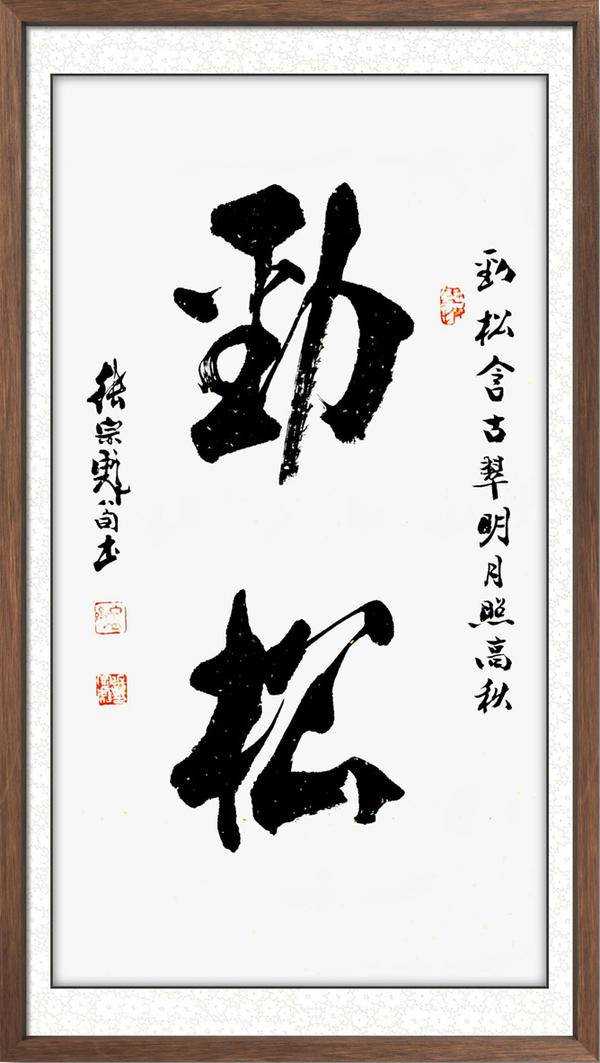 劲松含古翠明月照高秋
劲松
张宗书